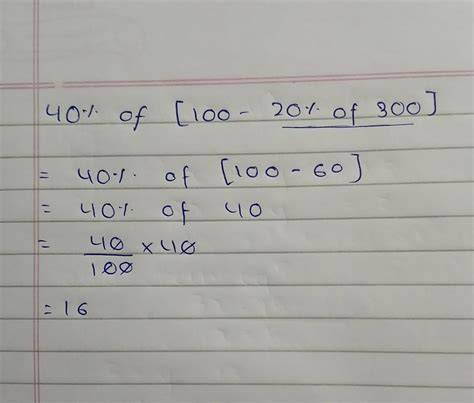 40% of [100 - 20% of 300]
= 40% of [100 - 60]
= 40% of 40
= 40/100 × 40
= 16